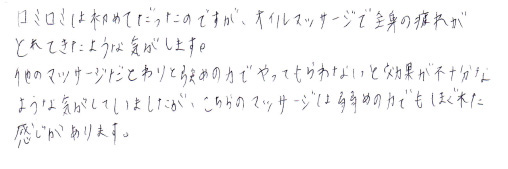 ロミロミは初めてだったのですが、オイルマッサージで全身の疲れが
とれてきたような気がします。
他のマッサージだとわりと強めの力でやってもらわないと効果が不十分な
ような気がしていましたが、こちらのマッサージは弱めの力でもほぐれた
感じがあります。